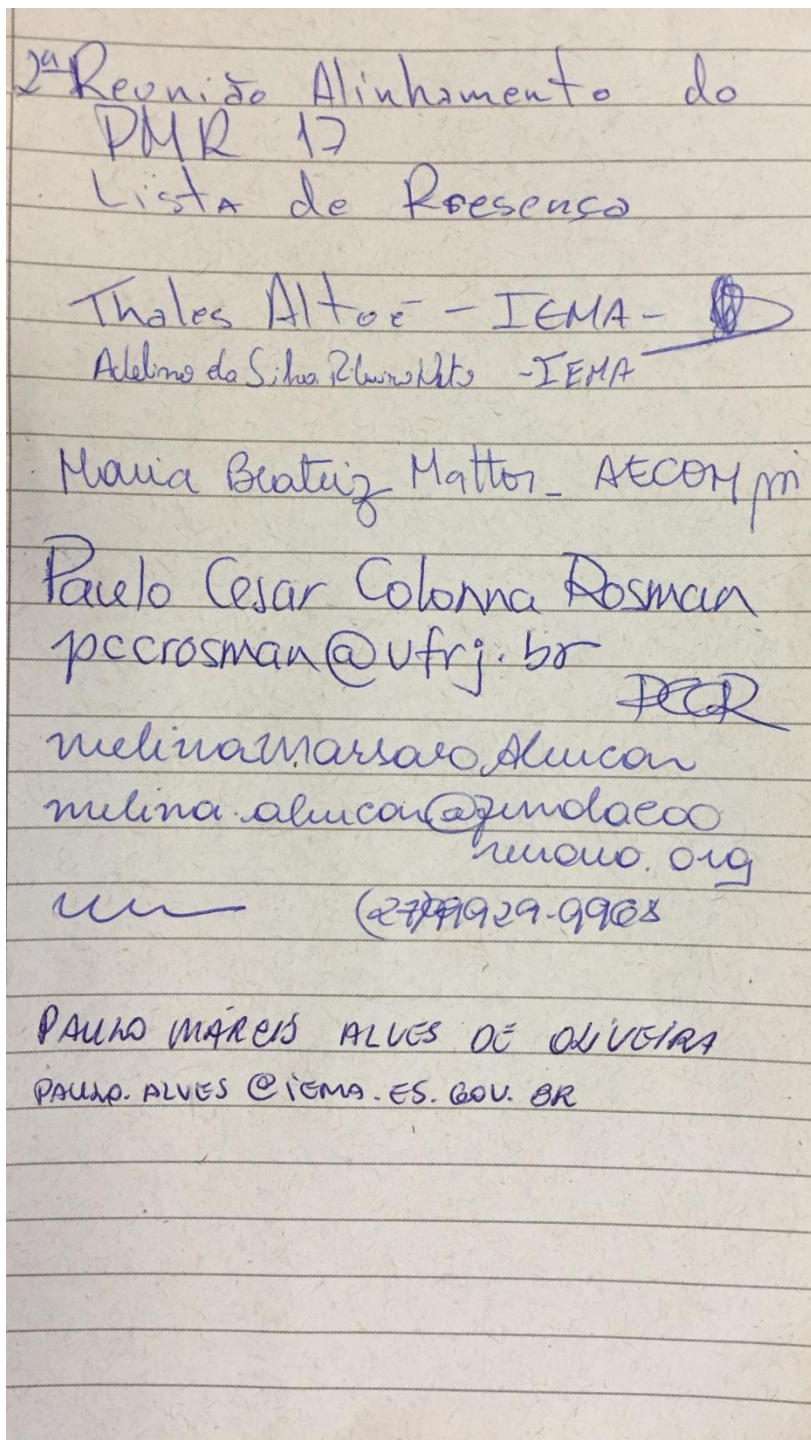 2ª Reunião Alinhamento do
PMR 17
Lista de Presença
Thales Altoé - IEMA -
Adelino da Silva Ribeiro Neto - IEMA
Maria Beatriz Mattos - AECOM
Paulo Cesar Colonna Rosman
pccrosman@ufrj.br
PCCR
melina marsaro Alencar
melina.alencar@fundacao
renova.org
(27)99929-9968
PAULO MÁRCIO ALVES DE OLIVEIRA
PAULO.ALVES@IEMA.ES.GOV.BR